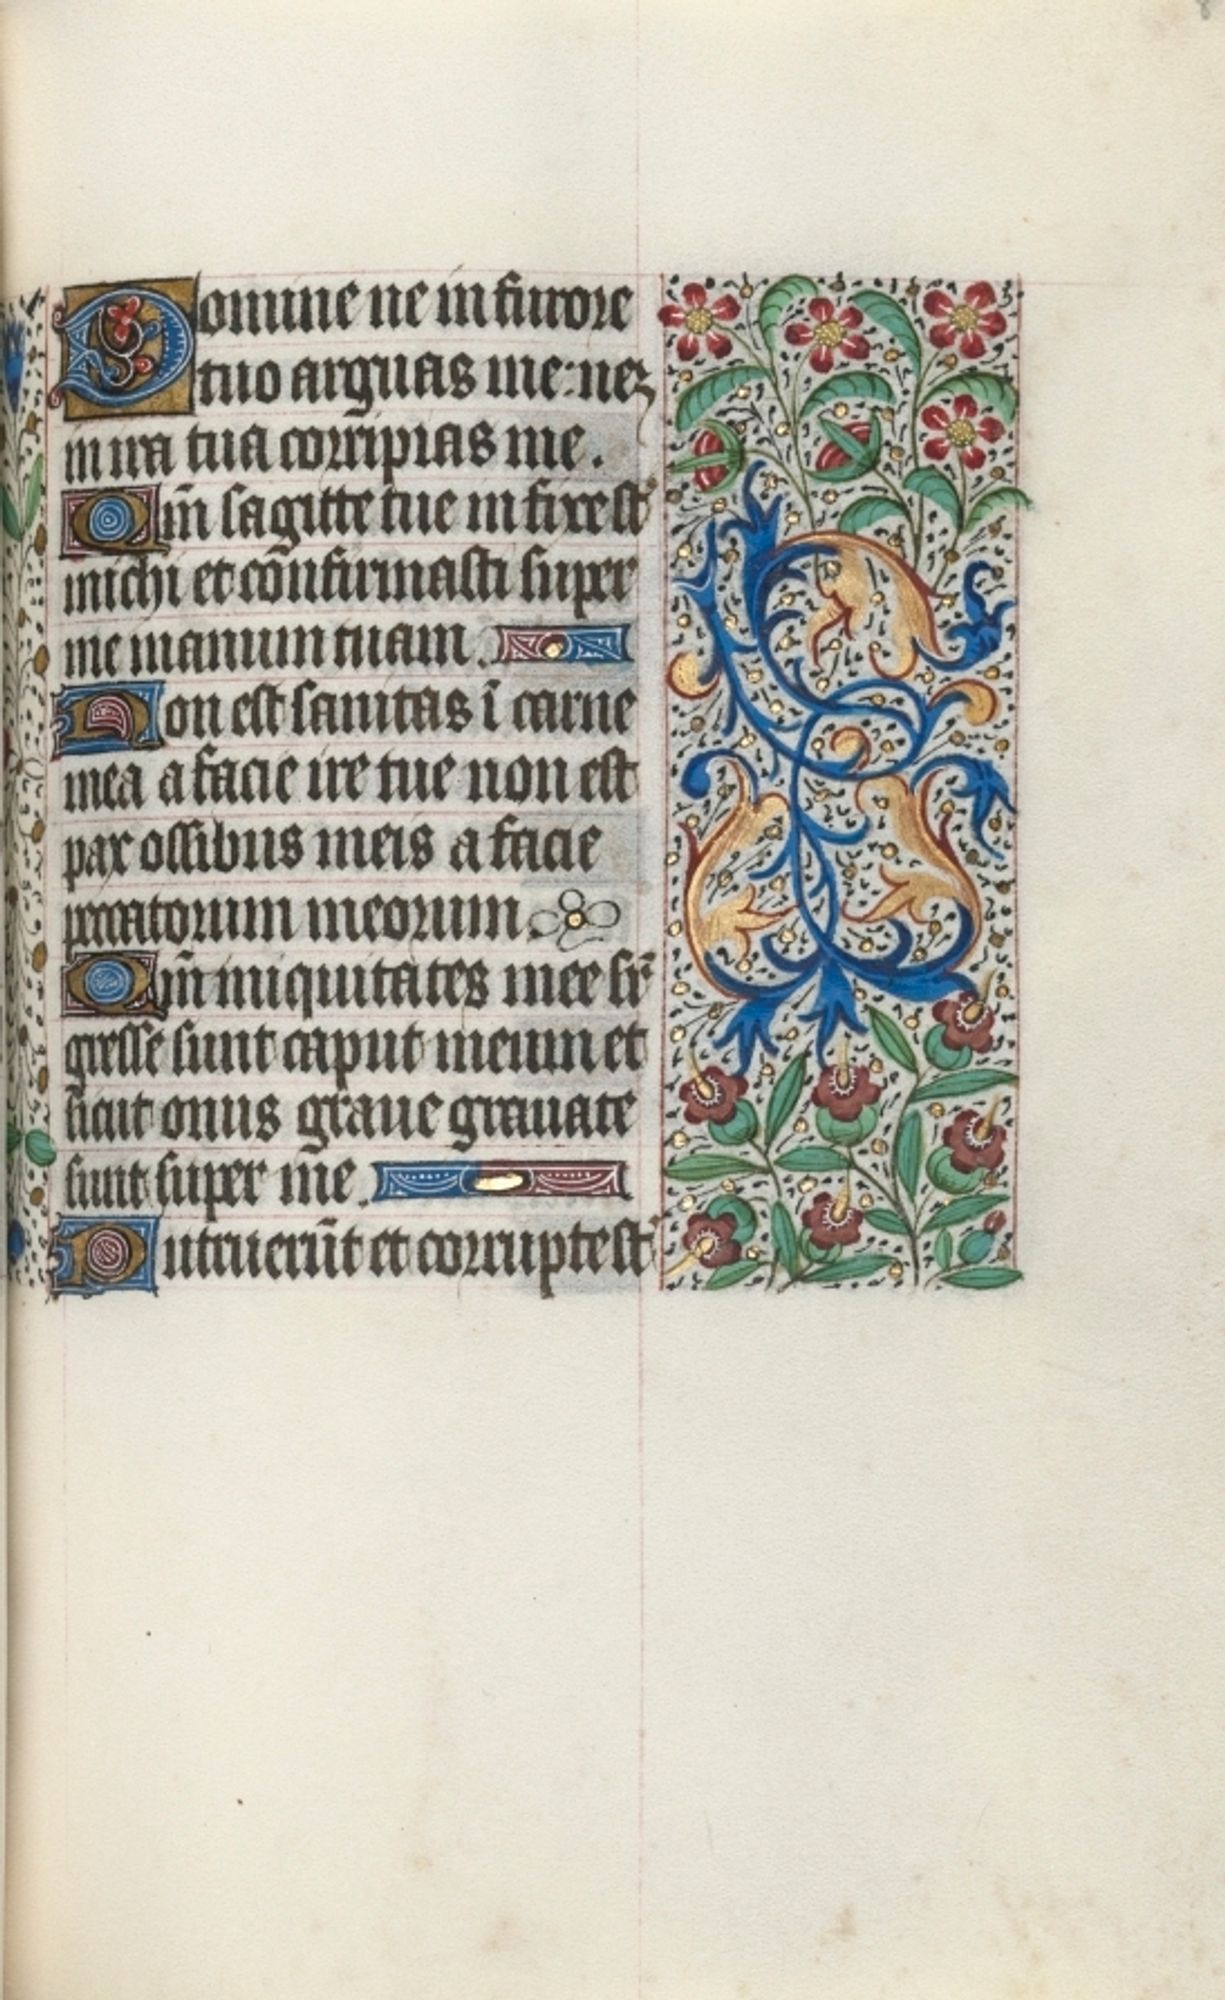 Domine ne in furore
tuo arguas me: neqꝫ
in ira tua corripias me.
Qm̄ sagitte tue in fixe st̄
michi et cōnfirmasti super
me manum tuam.
Non est sanitas ī carne
mea a facie ire tue non est
pax ossibus meis a facie
peccatorum meorum.
Qm̄ iniquitates mee sr̄
gresse sunt caput meum et
sicut onus graue grauate
sunt super me.
Putruerūt et corrupte st̄